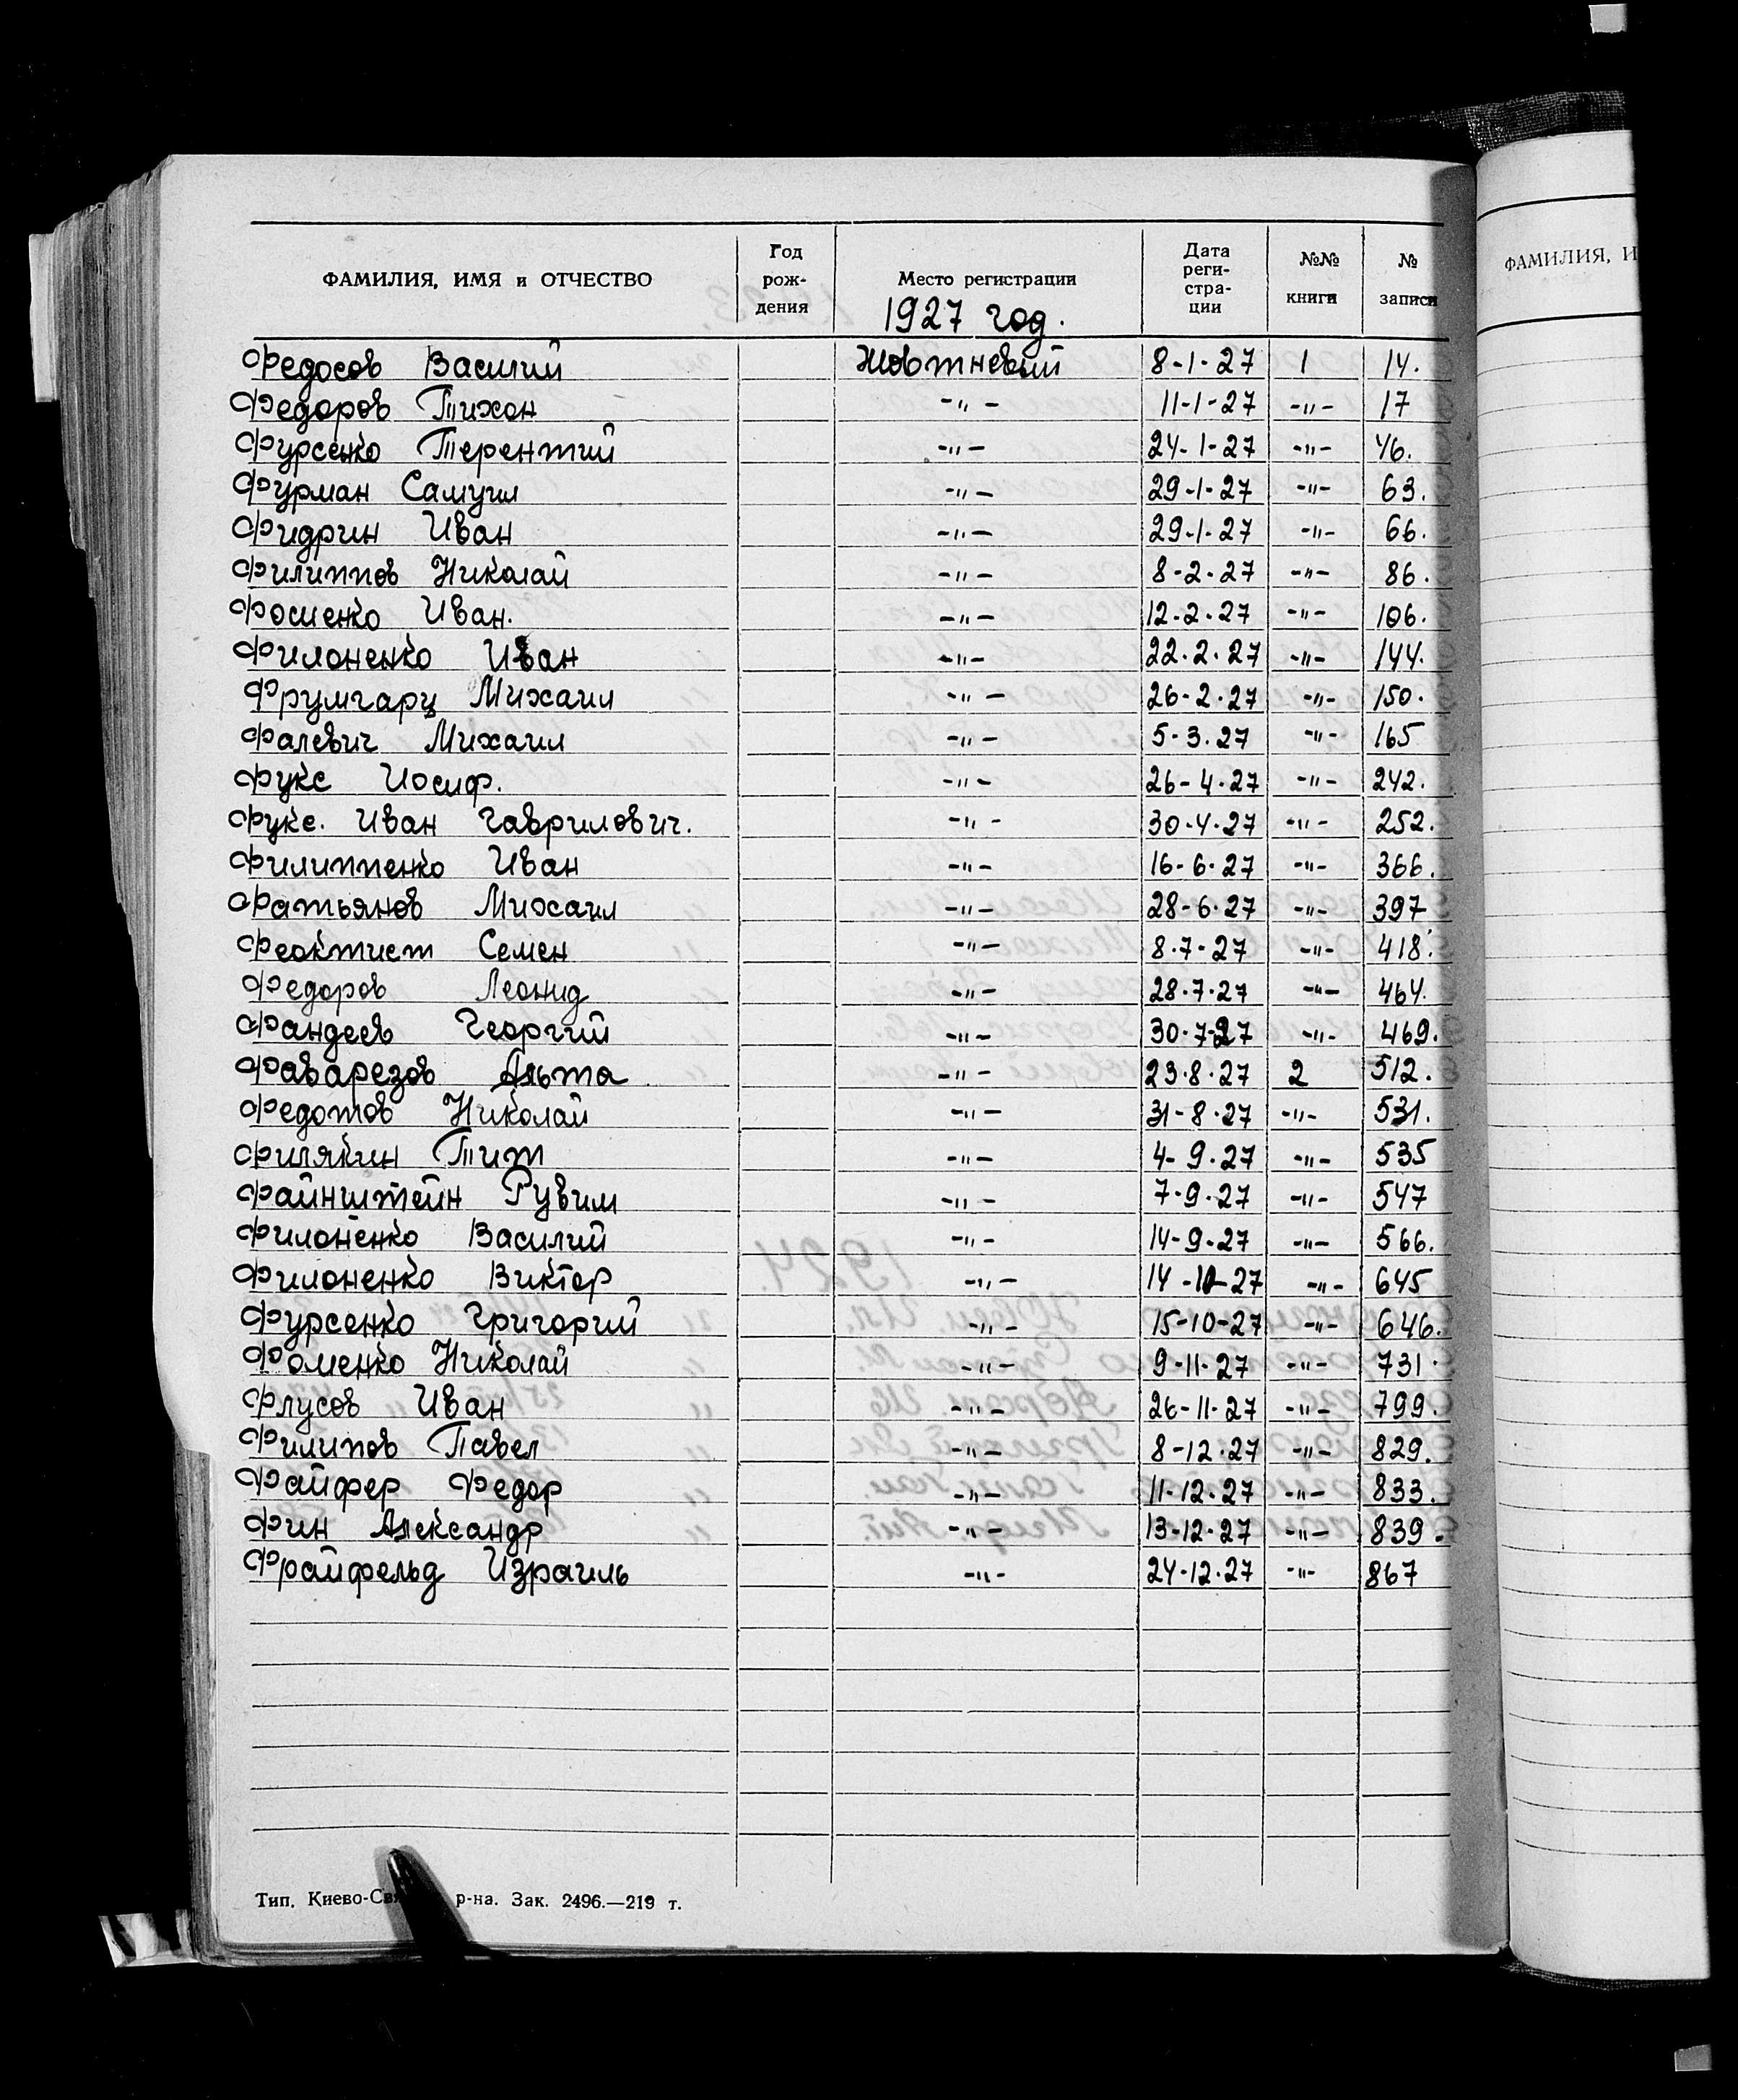 ФАМИЛИЯ, ИМЯ и ОТЧЕСТВО Год рож- дения Место регистрации Дата реги- стра- ции №№ книги № записи
1927 год.
Федосов Василий Жовтневый 8-1-27 1 14.
Федоров Тихон -"- 11-1-27 -"- 17
Фурсенко Терентий -"- 24-1-27 -"- 46.
Фурман Самуил -"- 29-1-27 -"- 63.
Фидрин Иван -"- 29-1-27 -"- 66.
Филиппов Николай -"- 8-2-27 -"- 86.
Фоменко Иван. -"- 12-2-27 -"- 106.
Филоненко Иван -"- 22.2.27 -"- 144.
Фрумгарц Михаил -"- 26-2.27 -"- 150.
Фалевич Михаил -"- 5-3.27 -"- 165
Фукс Иосиф. -"- 26-4.27 -"- 242.
Фукс. Иван Гаврилович. -"- 30.4.27 -"- 252.
Филиппенко Иван -"- 16-6.27 -"- 366.
Фатьянов Михаил -"- 28-6.27 -"- 397
Феоктист Семен -"- 8.7-27 -"- 418.
Федоров Леонид -"- 28.7.27 -"- 464.
Фандеев Георгий -"- 30.7-27 -"- 469.
Фаварезов Альта -"- 23.8.27 2 512.
Федотов Николай -"- 31-8.27 -"- 531.
Филякин Тит -"- 4-9.27 -"- 535
Файнштейн Рувим -"- 7-9.27 -"- 547
Филоненко Василий -"- 14-9-27 -"- 566.
Филоненко Виктор -"- 14-10-27 -"- 645
Фурсенко Григорий -"- 15-10-27 -"- 646.
Фоменко Николай -"- 9-11-27 -"- 731.
Флусов Иван -"- 26-11-27 -"- 799.
Филипов Павел -"- 8-12.27 -"- 829.
Файфер Федор -"- 11-12.27 -"- 833.
Фин Александр -"- 13-12.27 -"- 839.
Фрайфельд Израиль -"- 24-12.27 -"- 867
Тип. р-на. Зак. 2496.—219 т.
ФАМИЛИЯ, И